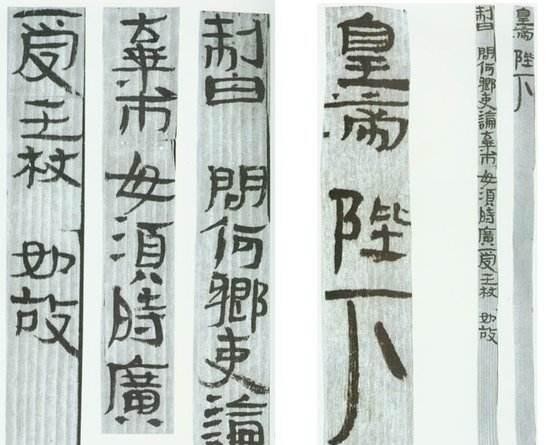 皇帝 陛下
制曰 問何鄉吏論棄市毋須時廣受王杖 如故
皇帝 陛下
制曰 問何鄉吏論
棄市毋須時廣
受王杖 如故